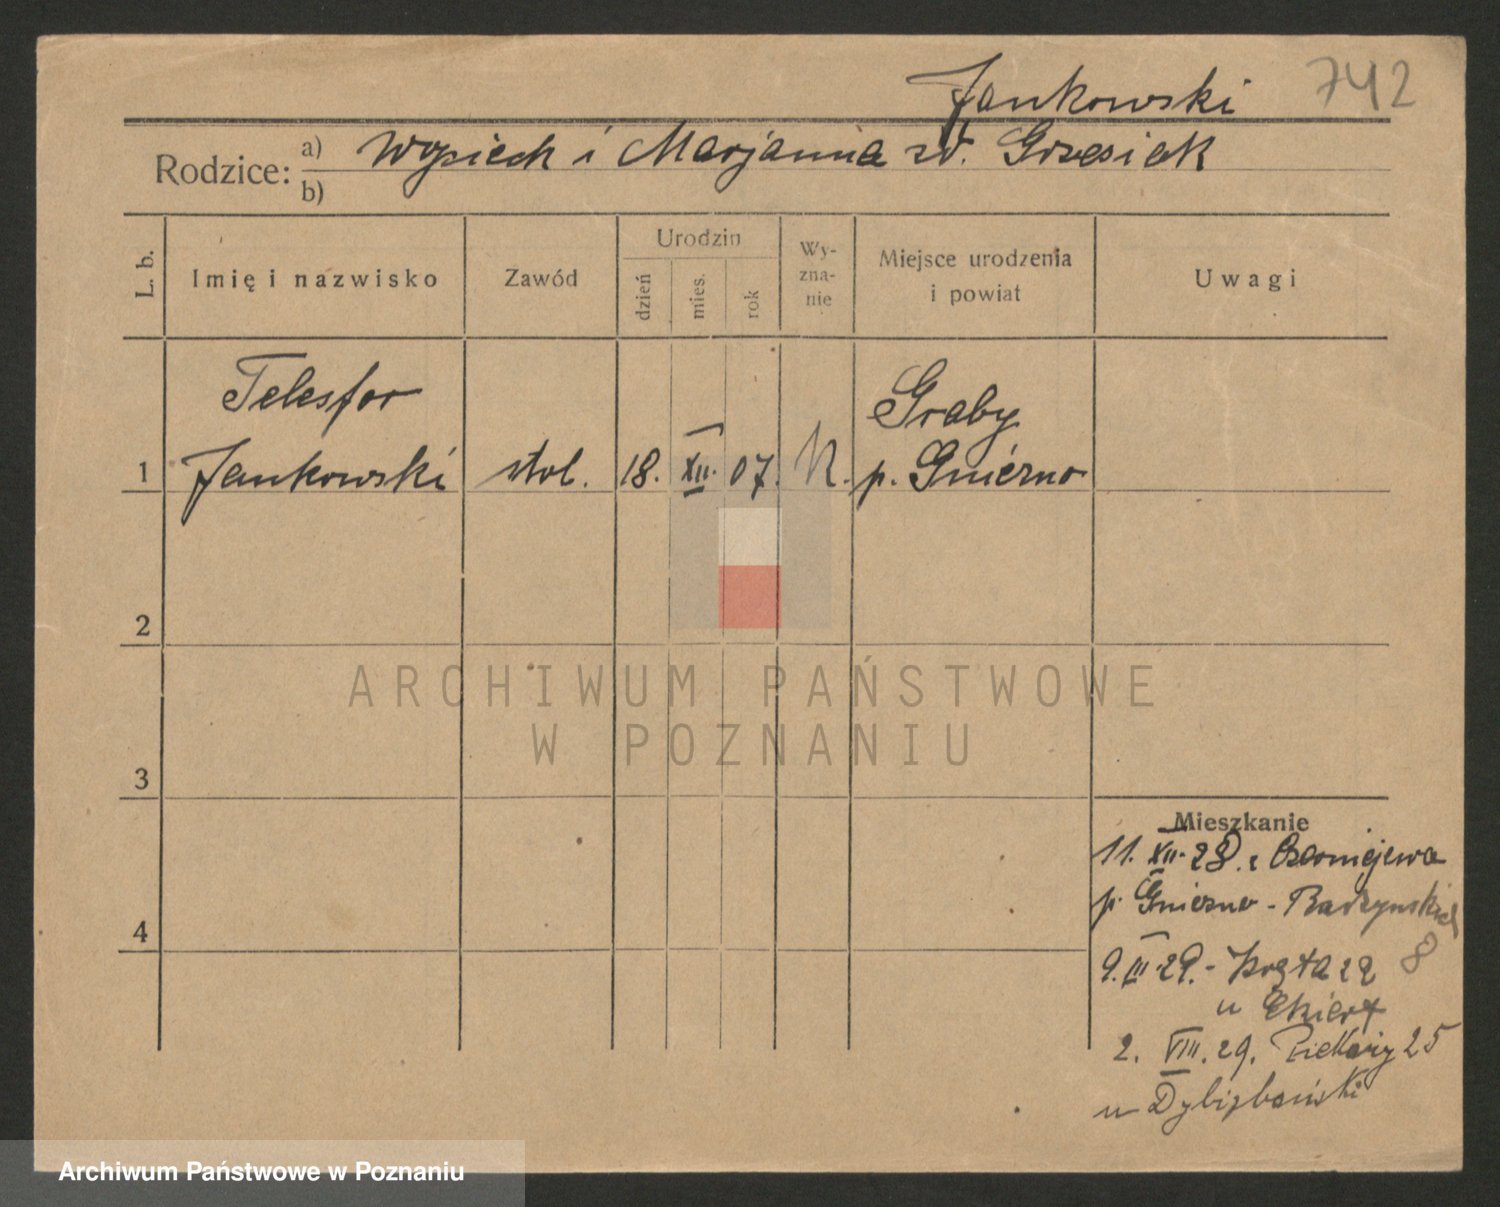 Jankowski 742
Rodzice: a) Wojciech i Marjanna zd. Grzesiak
b)
L. b.
Imię i nazwisko
Zawód
Urodzin
dzień
mies.
rok
Wy-
zna-
nie
Miejsce urodzenia
i powiat
Uwagi
Telesfor
Graby
1 Jankowski stol. 18. XII. 07. K. p. Gniezno
2
3
4
Mieszkanie
11. XII. 28. z Czerniejewa
p. Gniezno -
8
9. III. 29. -
u Ekiert
2. VIII. 29. Piekary 25
u
ARCHIWUM PAŃSTWOWE
W POZNANIU
Archiwum Państwowe w Poznaniu